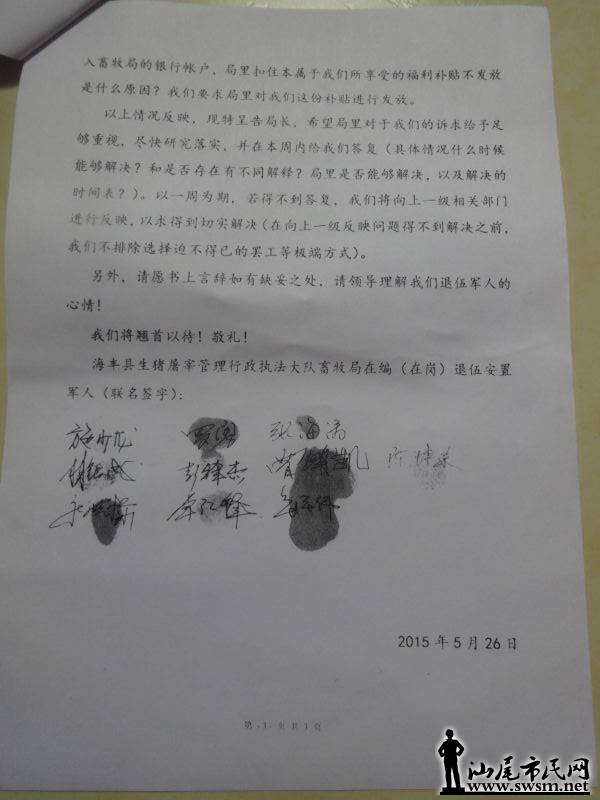 入畜牧局的银行帐户，局里扣住本属于我们所享受的福利补贴不发放
是什么原因？我们要求局里对我们这份补贴进行发放。
以上情况反映，现特呈告局长，希望局里对于我们的诉求给予足
够重视，尽快研究落实，并在本周内给我们答复（具体情况什么时候
能够解决？和是否存在有不同解释？局里是否能够解决，以及解决的
时间表？）。以一周为期，若得不到答复，我们将向上一级相关部门
进行反映，以求得到切实解决（在向上一级反映问题得不到解决之前，
我们不排除选择迫不得已的罢工等极端方式）。
另外，请愿书上言辞如有缺妥之处，请领导理解我们退伍军人的
心情！
我们将翘首以待！敬礼！
海丰县生猪屠宰管理行政执法大队畜牧局在编（在岗）退伍安置
军人（联名签字）：
彭肆杰
2015 年 5 月 26 日
汕尾市民网
www.swsm.net